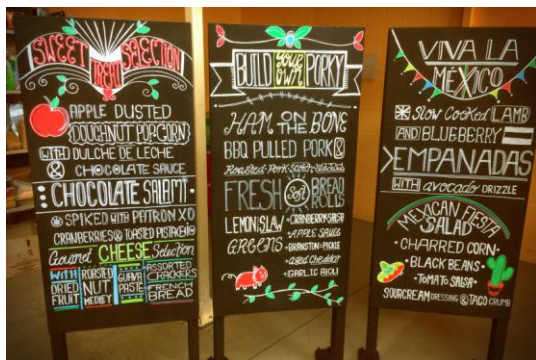 SWEET TREAT SELECTION
APPLE DUSTED
DOUGHNUT POPCORN
WITH DULCHE DE LECHE
& CHOCOLATE SAUCE
CHOCOLATE SALAMI
SPIKED WITH PATRON XO
CRANBERRIES & TOASTED PISTACHIO
Gourmet CHEESE Selection
WITH DRIED FRUIT
ROASTED NUT MEDLEY
GUAVA PASTE
ASSORTED CRACKERS
FRENCH BREAD
BUILD your own PORKY
HAM ON THE BONE
BBQ PULLED PORK &
Roasted Pork
FRESH Soft BREAD ROLLS
LEMON SLAW
GREENS
• CRANBERRY SALSA
• APPLE SAUCE
• BRANSTON PICKLE
• aged Cheddar
• GARLIC AIOLI
VIVA LA
MÉXICO
Slow Cooked LAMB
AND BLUEBERRY
EMPANADAS
WITH avocado DRIZZLE
MEXICAN FIESTA
SALAD
• CHARRED CORN •
• BLACK BEANS •
• TOMATO SALSA •
SOURCREAM DRESSING & TACO CRUMB